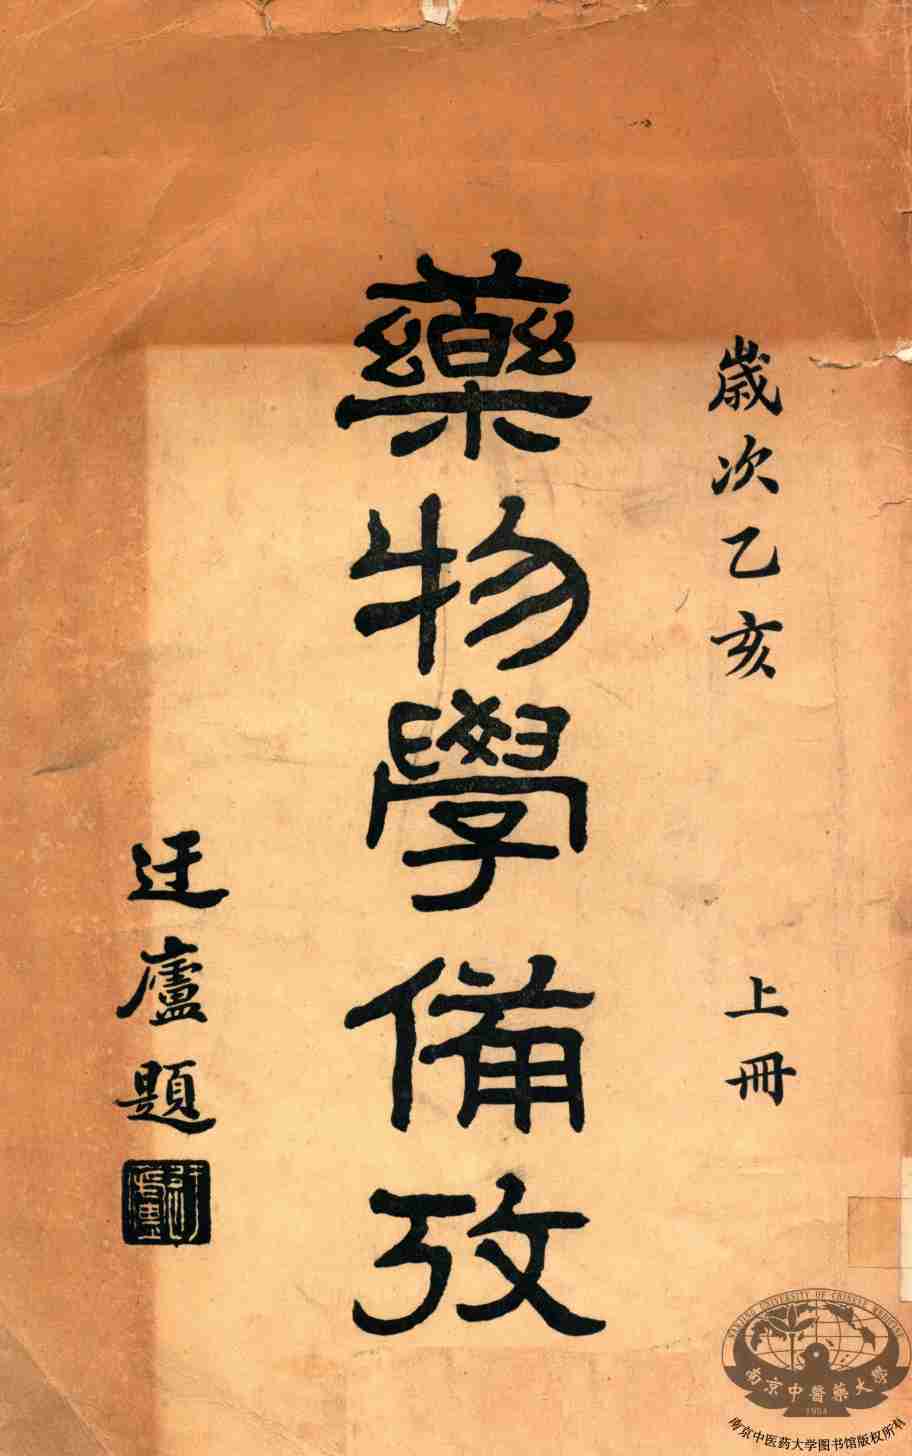 歲次乙亥
上冊
藥物學備攷
迂廬題
NANJING UNIVERSITY OF CHINESE MEDICINE
南京中醫藥大學
1954
南京中医药大学图书馆版权所有